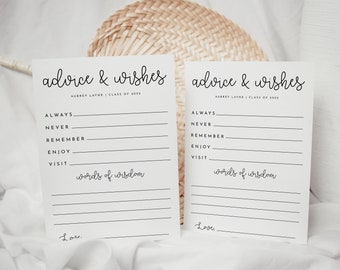 advice & wishes
AUBREY LAYNE | CLASS OF 2022
ALWAYS
NEVER
REMEMBER
ENJOY
VISIT
words of wisdom
Love,
advice & wishes
AUBREY LAYNE | CLASS OF 2022
ALWAYS
NEVER
REMEMBER
ENJOY
VISIT
words of wisdom
Love,